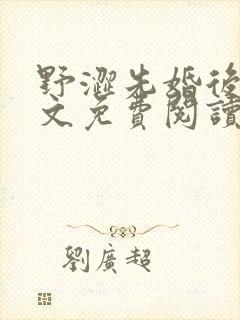 野澀先婚後
文免費閱讀
劉廣超